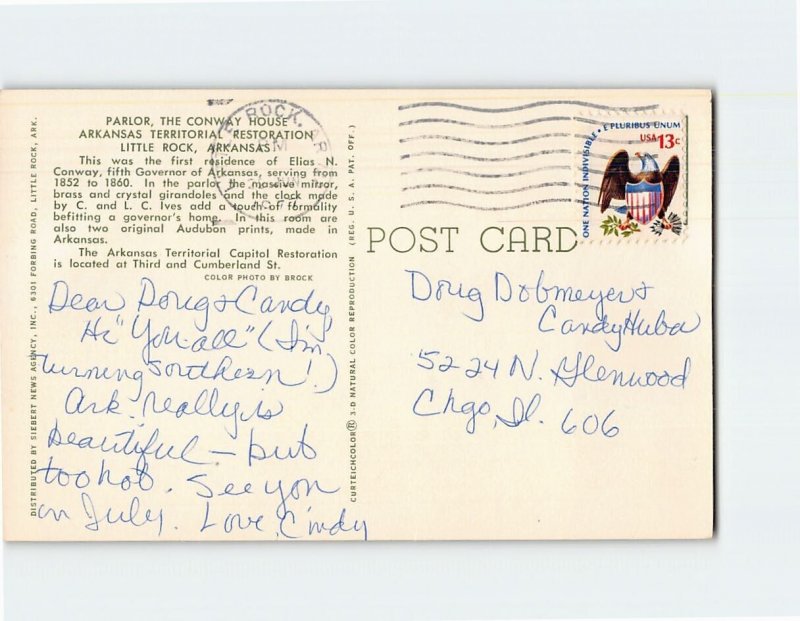 PARLOR, THE CONWAY HOUSE
ARKANSAS TERRITORIAL RESTORATION
LITTLE ROCK, ARKANSAS
This was the first residence of Elias N.
Conway, fifth Governor of Arkansas, serving from
1852 to 1860. In the parlor the massive mirror,
brass and crystal girandoles and the clock made
by C. and L. C. Ives add a touch of formality
befitting a governor's home. In this room are
also two original Audubon prints, made in
Arkansas.
The Arkansas Territorial Capitol Restoration
is located at Third and Cumberland St.
COLOR PHOTO BY BROCK
Dear Doug & Candy,
Hi "You-all" (I'm
turning southern!)
Ark. really is
beautiful - but
too hot. See you
in July. Love, Cindy
DISTRIBUTED BY SIEBERT NEWS AGENCY, INC., 6301 FORBING ROAD, LITTLE ROCK, ARK.
CURTEICHCOLOR® 3-D NATURAL COLOR REPRODUCTION (REG. U. S. A. PAT. OFF.)
ROCK, AR
ONE NATION INDIVISIBLE • E PLURIBUS UNUM
USA 13c
POST CARD
Doug Dobmeyer &
Candy Huba
5224 N. Glenwood
Chgo, Il. 606